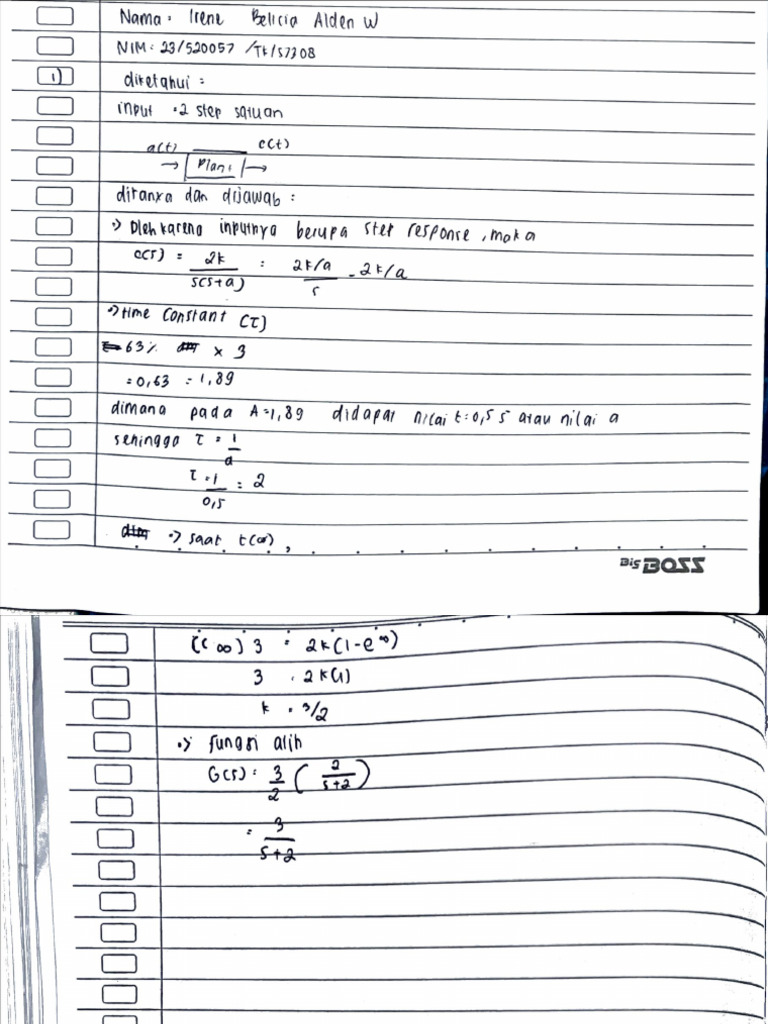 Nama: Irene Belicia Alden W
NIM: 23/520057 /TK/57308
1) diketahui :
input = 2 step satuan
a(t) c(t)
→ Plant →
ditanya dan dijawab :
•> Oleh karena inputnya berupa step response, maka
C(s) = 2k / s(s+a) = 2k/a / s - 2k/a
•> time constant (τ)
63% × 3
= 0,63 = 1,89
dimana pada A=1,89 didapat nilai t=0,55 atau nilai a
sehingga τ = 1/a
τ = 1/0,5 = 2
•> saat t(∞),
BIG BOSS
(c ∞) 3 = 2k(1-e^∞)
3 = 2k(1)
k = 3/2
•> fungsi alih
G(s) = 3/2 ( 2/s+2 )
= 3/s+2